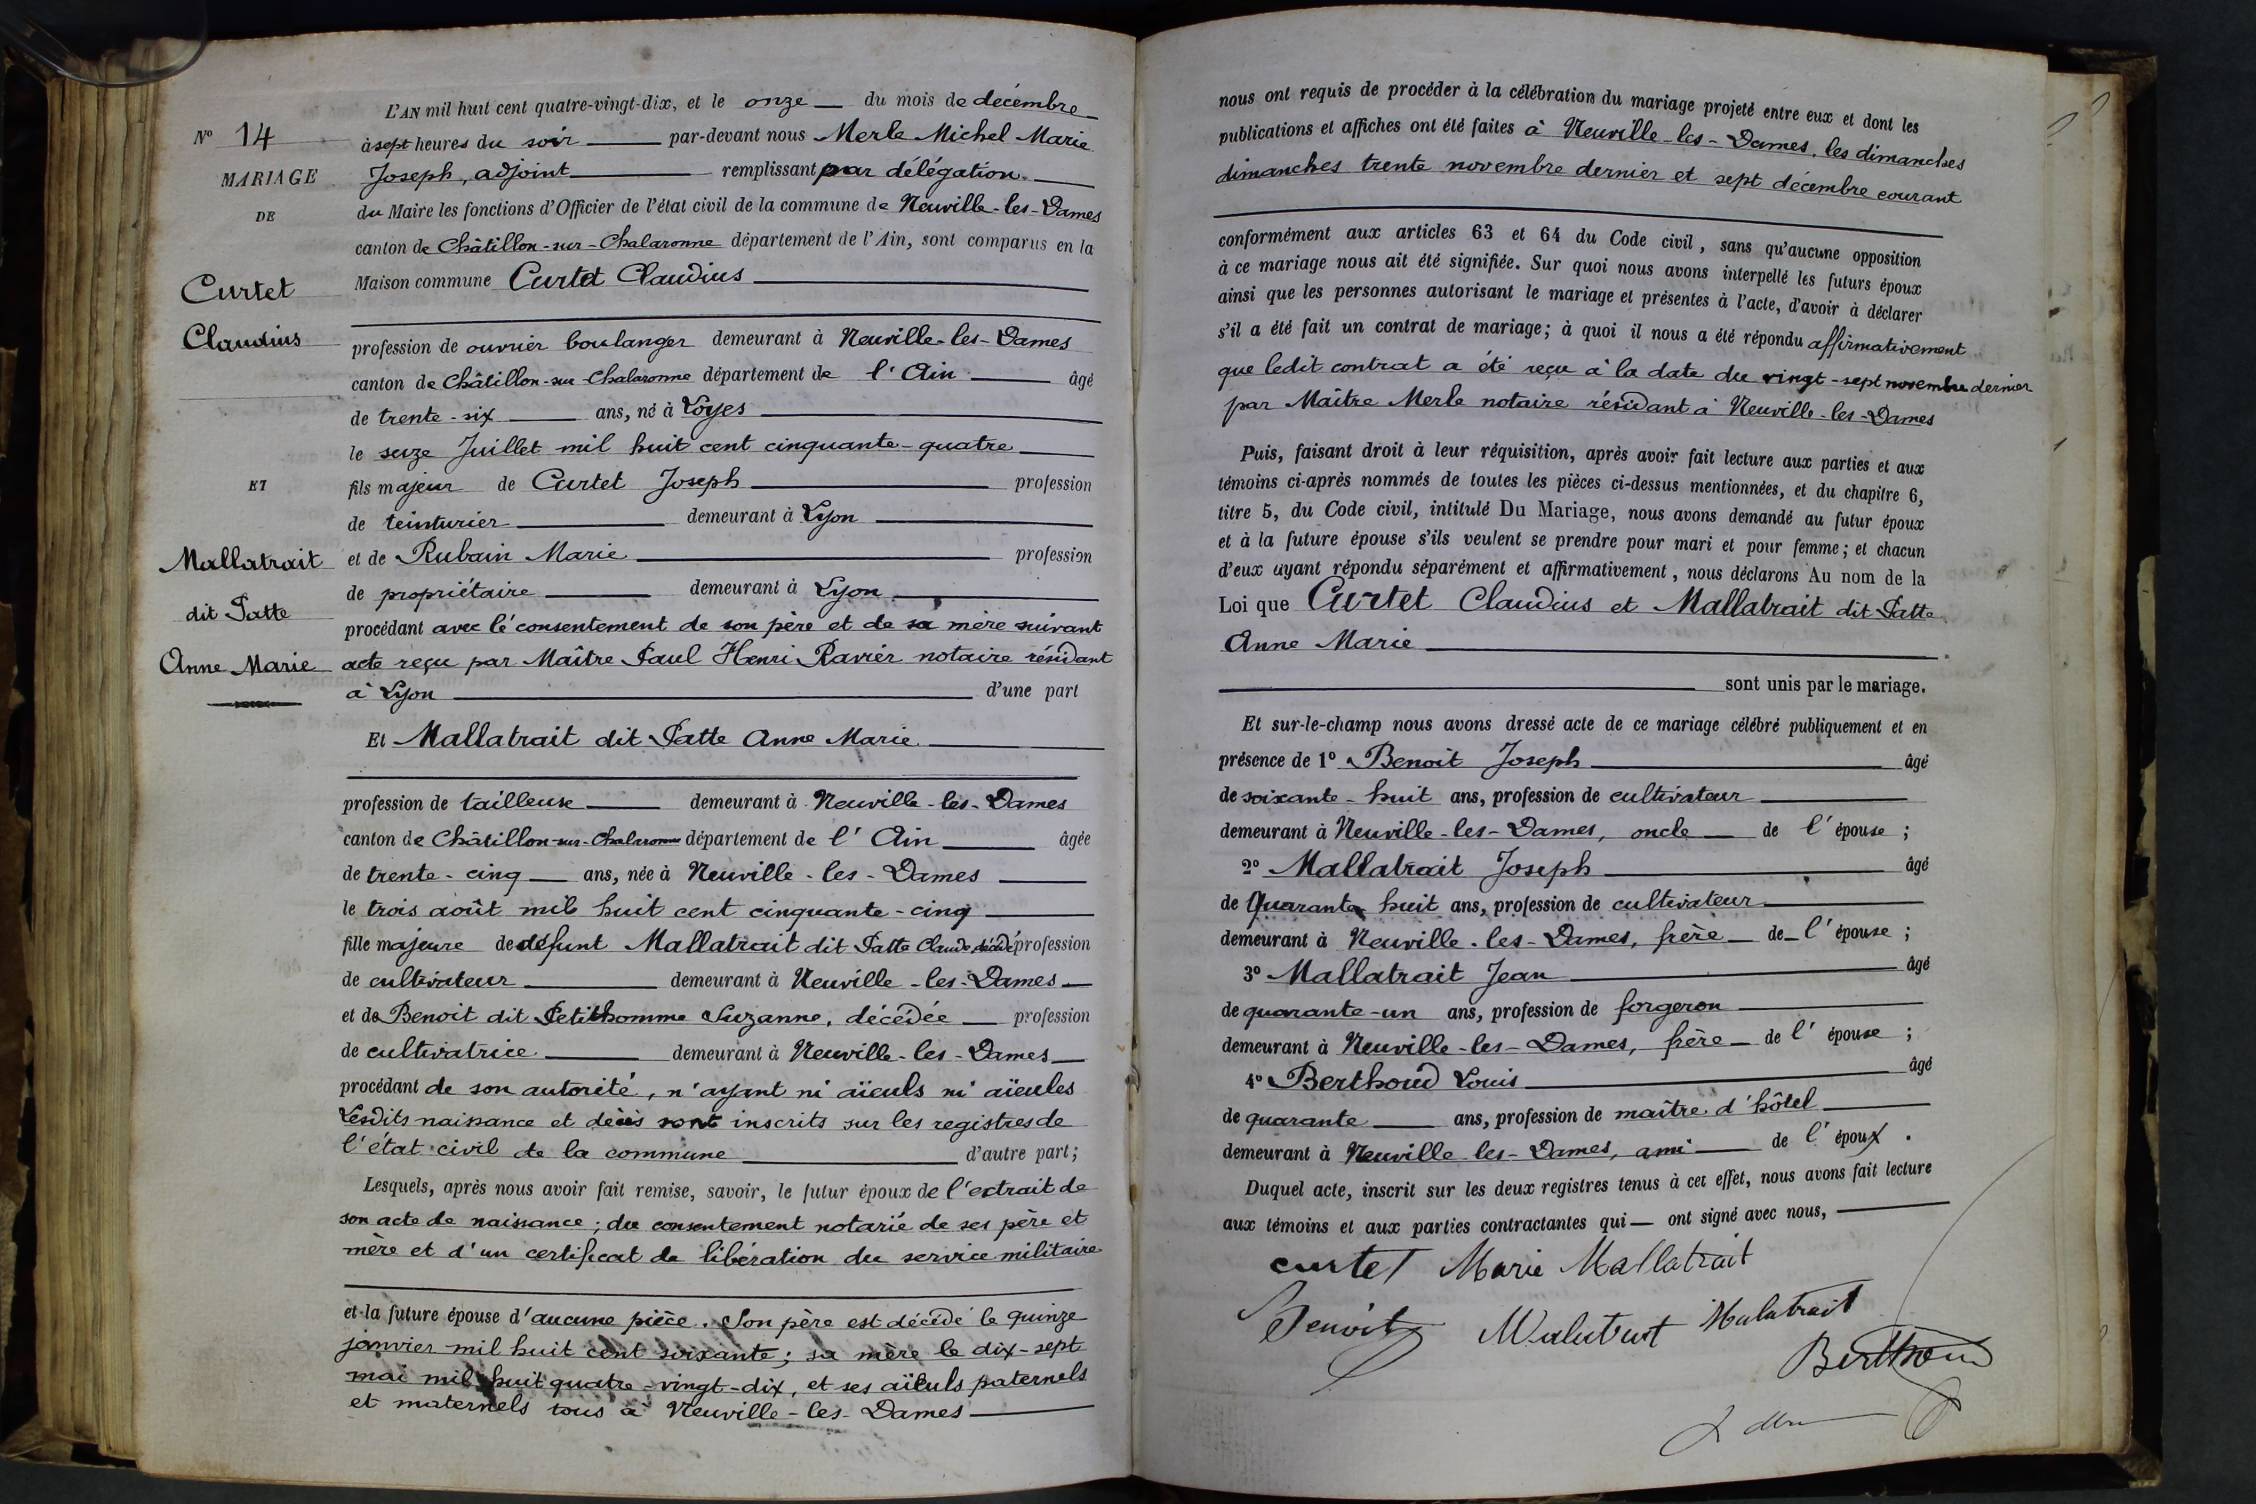 N° 14
MARIAGE
DE
Curtet
Claudius
ET
Mallatrait
dit Patte
Anne Marie
L'AN mil huit cent quatre-vingt-dix, et le onze du mois de décembre
à sept heures du soir par-devant nous Merle Michel Marie
Joseph, adjoint remplissant par délégation
du Maire les fonctions d'Officier de l'état civil de la commune de Neuville-les-Dames
canton de Châtillon-sur-Chalaronne département de l'Ain, sont comparus en la
Maison commune Curtet Claudius
profession de ouvrier boulanger demeurant à Neuville-les-Dames
canton de Châtillon-sur-Chalaronne département de l'Ain âgé
de trente-six ans, né à Loyes
le seize Juillet mil huit cent cinquante-quatre
fils majeur de Curtet Joseph profession
de teinturier demeurant à Lyon
et de Rubain Marie profession
de propriétaire demeurant à Lyon
procédant avec le consentement de son père et de sa mère suivant
acte reçu par Maître Paul Henri Ravier notaire résidant
à Lyon d'une part
Et Mallatrait dit Patte Anne Marie
profession de tailleuse demeurant à Neuville-les-Dames
canton de Châtillon-sur-Chalaronne département de l'Ain âgée
de trente-cinq ans, née à Neuville-les-Dames
le trois août mil huit cent cinquante-cinq
fille majeure de défunt Mallatrait dit Patte Claude décédé profession
de cultivateur demeurant à Neuville-les-Dames
et de Benoit dit Petithomme Suzanne, décédée profession
de cultivatrice demeurant à Neuville-les-Dames
procédant de son autorité, n'ayant ni aïeuls ni aïeules
Lesdits naissance et décès sont inscrits sur les registres de
l'état civil de la commune d'autre part;
Lesquels, après nous avoir fait remise, savoir, le futur époux de l'extrait de
son acte de naissance; du consentement notarié de ses père et
mère et d'un certificat de libération du service militaire
et la future épouse d'aucune pièce. Son père est décédé le quinze
janvier mil huit cent soixante; sa mère le dix-sept
mai mil huit quatre-vingt-dix, et ses aïeuls paternels
et maternels tous à Neuville-les-Dames
nous ont requis de procéder à la célébration du mariage projeté entre eux et dont les
publications et affiches ont été faites à Neuville-les-Dames, les dimanches
dimanches trente novembre dernier et sept décembre courant
conformément aux articles 63 et 64 du Code civil, sans qu'aucune opposition
à ce mariage nous ait été signifiée. Sur quoi nous avons interpellé les futurs époux
ainsi que les personnes autorisant le mariage et présentes à l'acte, d'avoir à déclarer
s'il a été fait un contrat de mariage; à quoi il nous a été répondu affirmativement
que ledit contrat a été reçu à la date du vingt-sept novembre dernier
par Maître Merle notaire résidant à Neuville-les-Dames
Puis, faisant droit à leur réquisition, après avoir fait lecture aux parties et aux
témoins ci-après nommés de toutes les pièces ci-dessus mentionnées, et du chapitre 6,
titre 5, du Code civil, intitulé Du Mariage, nous avons demandé au futur époux
et à la future épouse s'ils veulent se prendre pour mari et pour femme; et chacun
d'eux ayant répondu séparément et affirmativement, nous déclarons Au nom de la
Loi que Curtet Claudius et Mallatrait dit Patte
Anne Marie
sont unis par le mariage.
Et sur-le-champ nous avons dressé acte de ce mariage célébré publiquement et en
présence de 1° Benoit Joseph âgé
de soixante-huit ans, profession de cultivateur
demeurant à Neuville-les-Dames, oncle de l'épouse;
2° Mallatrait Joseph âgé
de Quarante huit ans, profession de cultivateur
demeurant à Neuville-les-Dames, frère de l'épouse;
3° Mallatrait Jean âgé
de quarante-un ans, profession de forgeron
demeurant à Neuville-les-Dames, frère de l'épouse;
4° Berthoud Louis âgé
de quarante ans, profession de maître d'hôtel
demeurant à Neuville-les-Dames, ami de l'époux.
Duquel acte, inscrit sur les deux registres tenus à cet effet, nous avons fait lecture
aux témoins et aux parties contractantes qui ont signé avec nous,
curtet Marie Mallatrait
Benoit Malatrait Malatrait
Berthoud